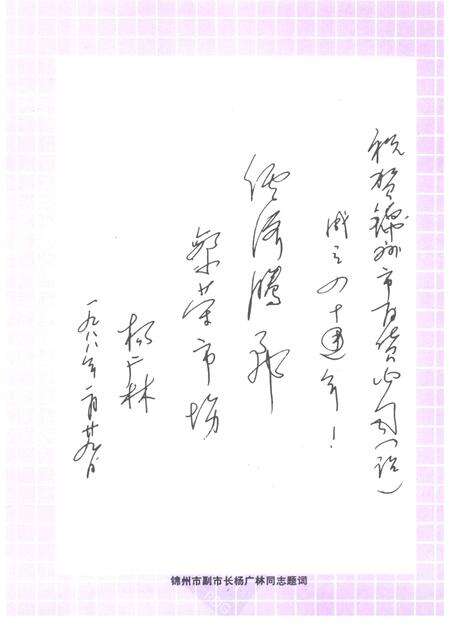 祝贺锦州市百货公司(站)
成立四十周年!
经济腾飞
繁荣市场
杨广林
一九八八年二月廿九日
锦州市副市长杨广林同志题词